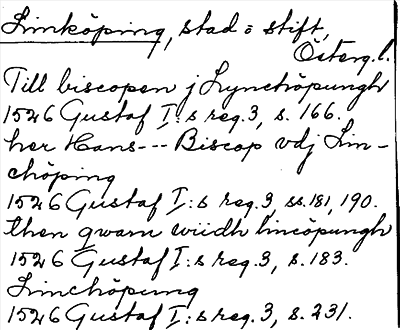 Linköping, stad o stift,
Österg.l.
Till biscopen j Lynchöpungh
1526 Gustaf I:s reg. 3, s. 166.
her Hans --- Biscop vdj Lin-
chöping
1526 Gustaf I:s reg. 3, ss. 181, 190.
then qwarn wiidh lincöpungh
1526 Gustaf I:s reg. 3, s. 183.
Linchöpung
1526 Gustaf I:s reg. 3, s. 231.